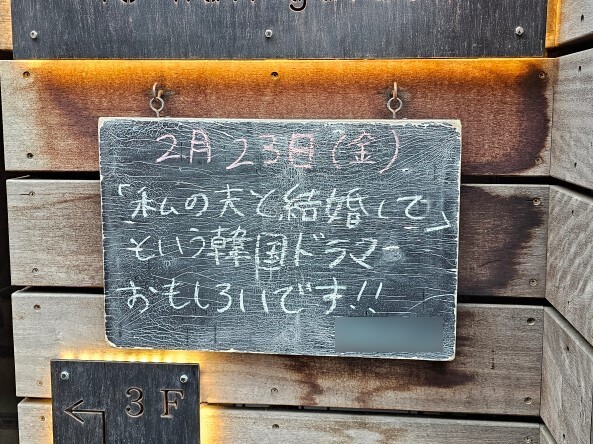 2月23日(金)
「私の夫と結婚して」
という韓国ドラマー
おもしろいです!!
3F